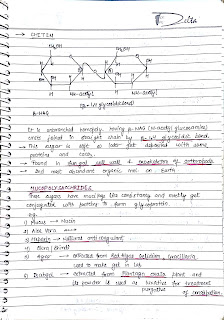 Delta
→ CHITIN
CH₂OH
CH₂OH
O
O
O
H
H
NH-acetyl
NH-acetyl
(β-1,4 glycosidic bond)
β-NAG
It is unbranched homopoly. Having β-NAG (N-acetyl glucosamine)
units joined in straight chain by β-1,4 glycosidic bond.
→ This sugar is soft & later get deposited with some
proteins and CaCO₃.
→ Found in fungal cell wall & exoskeleton of arthropods.
→ 2nd most abundant organic mol. on Earth
MUCOPOLYSACCHARIDES
These sugars have mucilage like consistency and mostly get
conjugated with proteins to form glycoprotein.
eg.
1) Mucus → Mucin
2) Aloe Vera
3) Heparin → natural anticoagulant
4) Okra / Bhindi
5) Agar → extracted from Red algae Gelidium, Gracillaria
used to make gel in lab
6) Isabgol → extracted from Plantago ovata plant and
its powder is used as laxative for treatment
purgative of constipation.